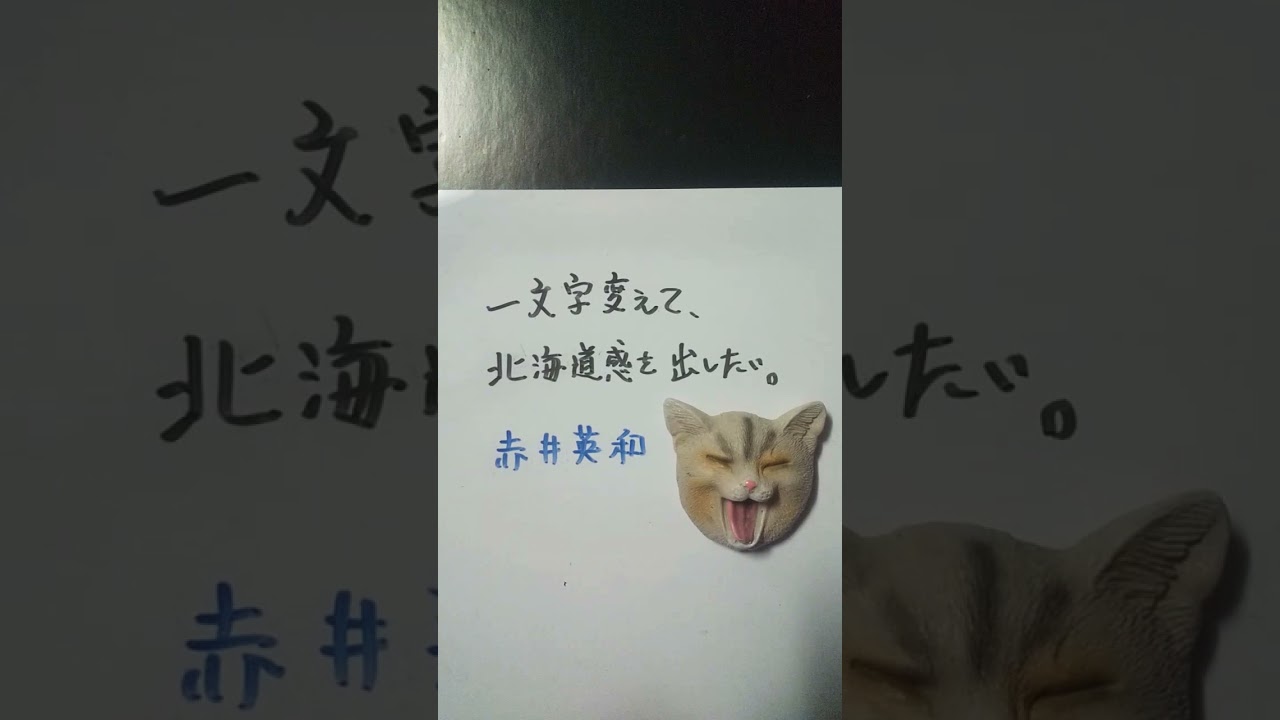 一文字変えて、
北海道感を出したい。
赤井英和